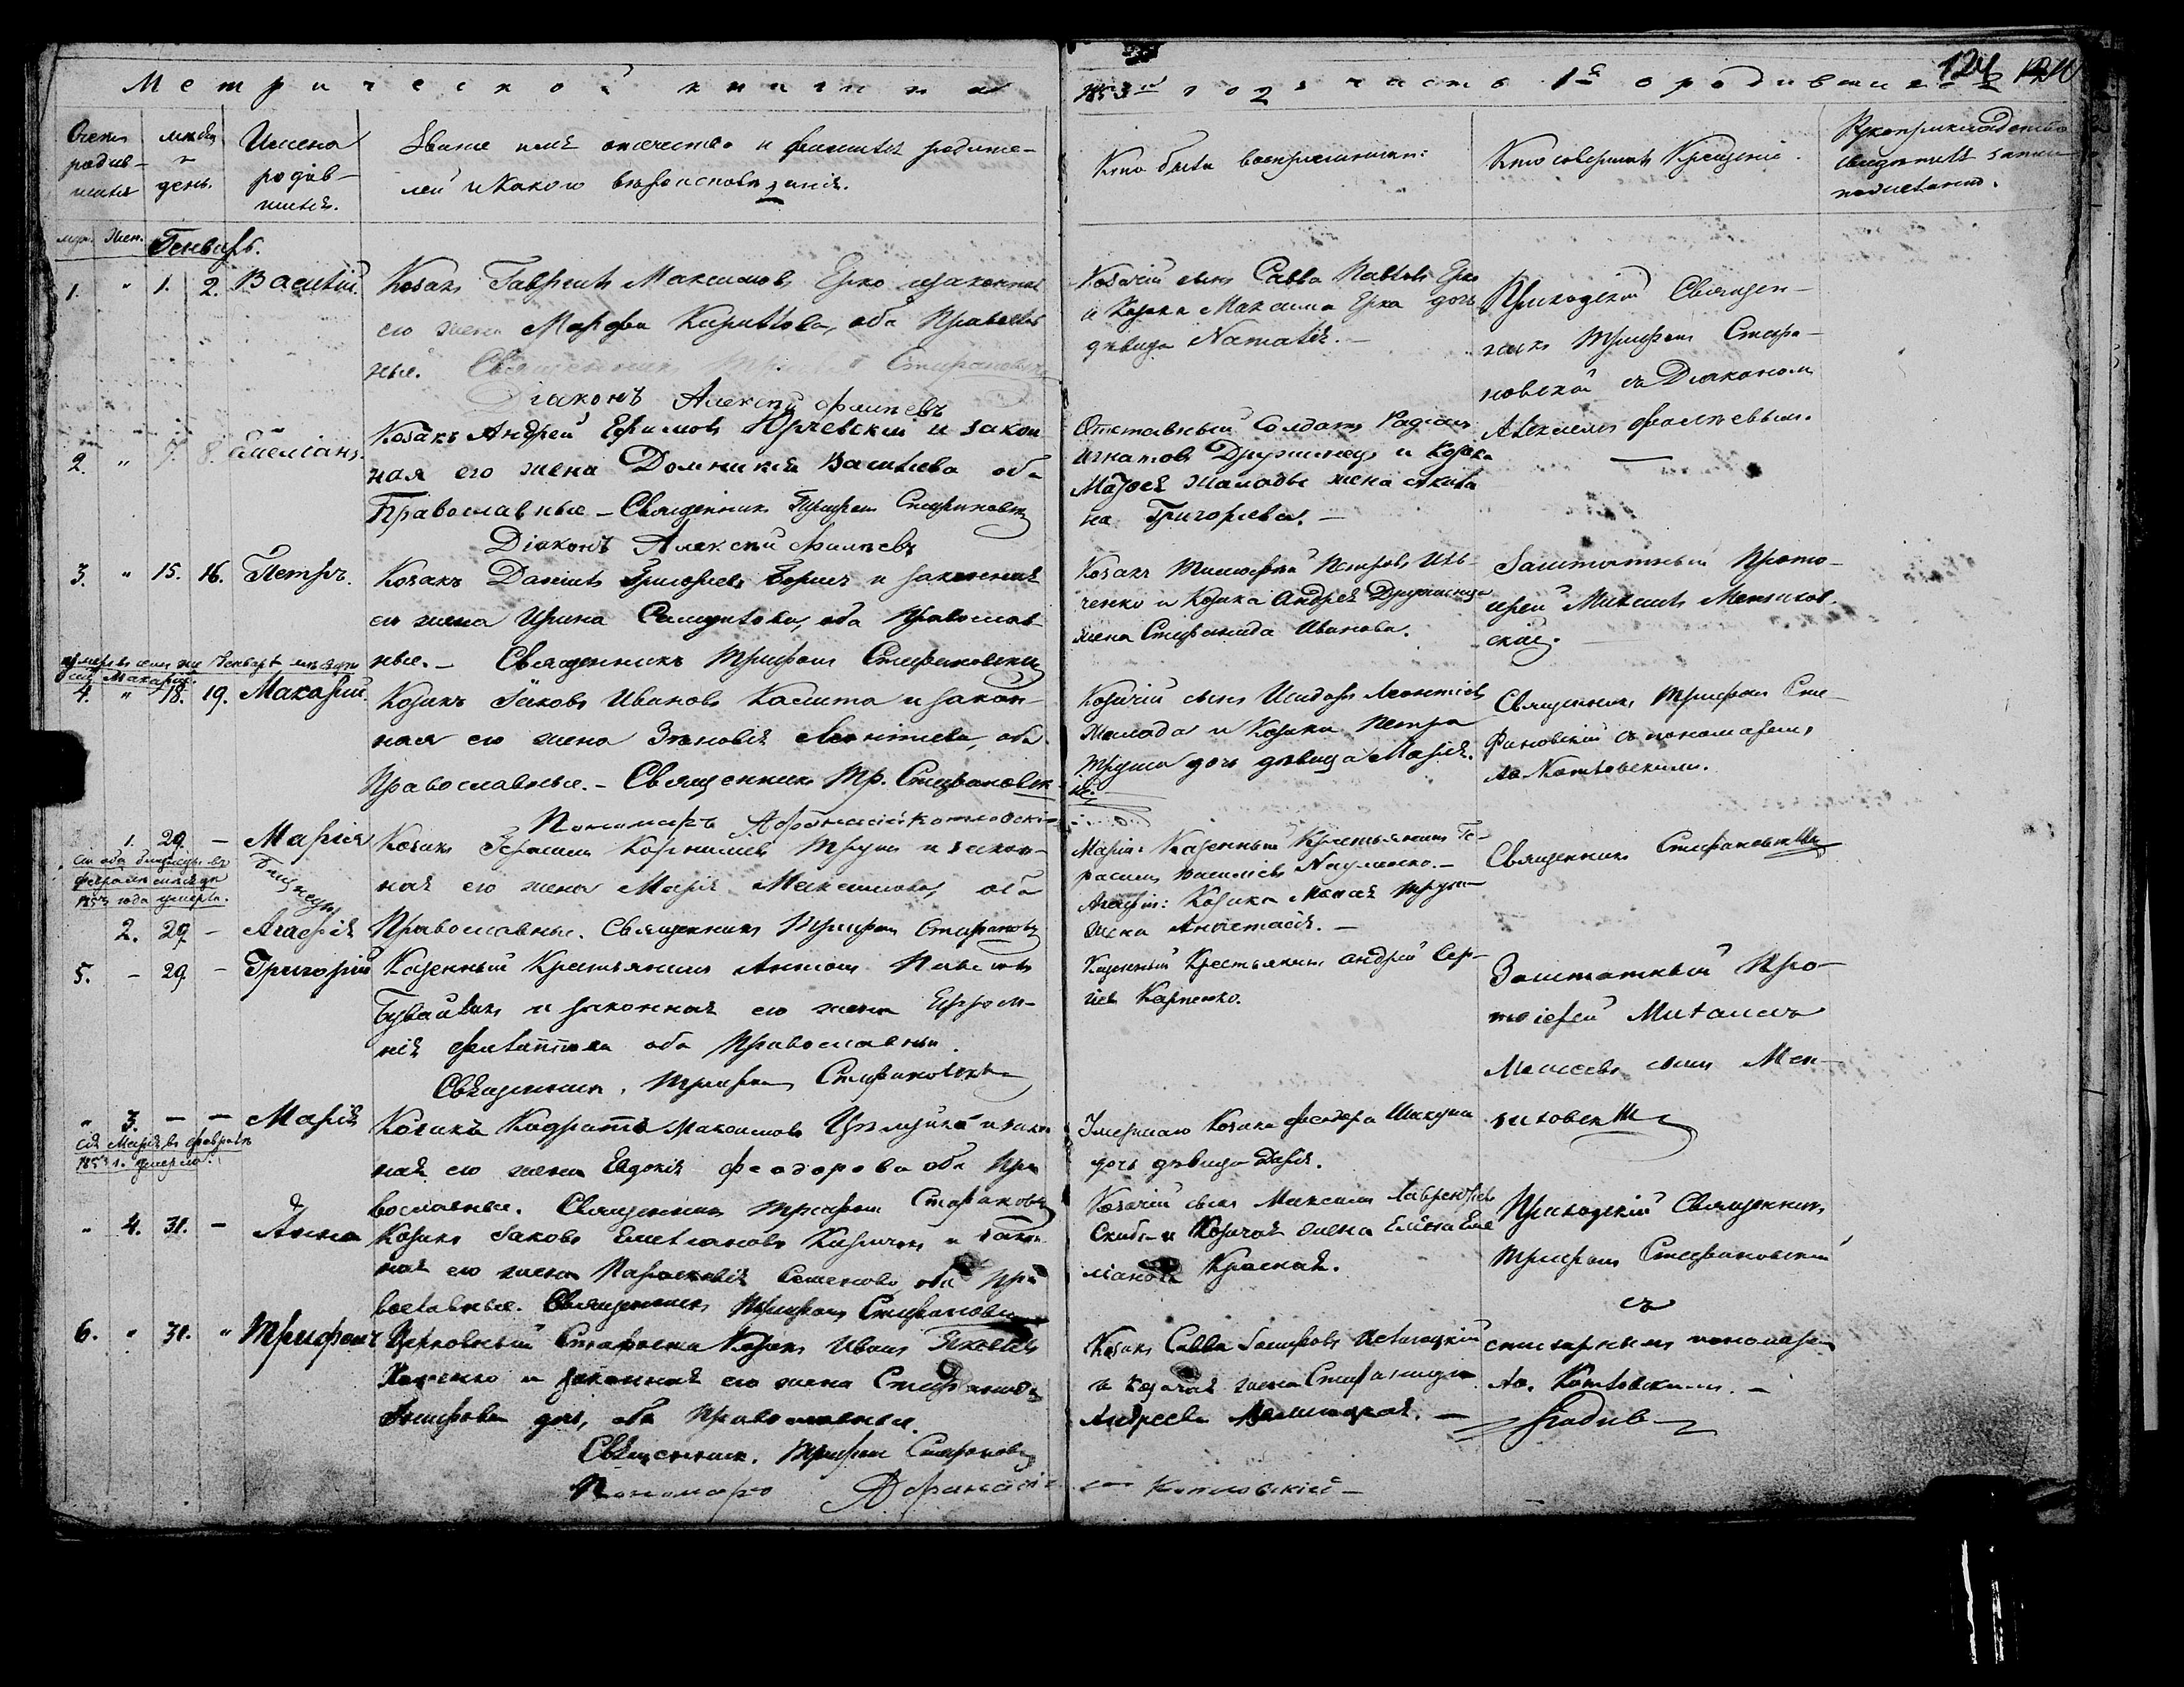 Метрической книги на
1853й годъ часть 1я о родившихся
124
Счетъ родив-
шихся
мѣсяц
и
день.
Имена
родив-
шихся.
Званіе имя отчество и фамилія родите-
лей и какого вѣроисповѣданія.
Кто были воспріемники:
Кто совершалъ Крещеніе.
Рукоприкладство
свидѣтелей записи
по желанію.
муж. Жен. Генварь.
1. " 1. 2. Василій.
Козакъ Гавріилъ Максимовъ Ерко и законная
его жена Марфа Кириллова, оба Православ
ные. Священникъ Трифонъ Стефановскій
Діаконъ Алексѣй
Козачій сынъ Савва Павловъ Ерко
и Козака Максима Ерка дочь
дѣвица Наталія. —
Приходскій Священ-
никъ Трифонъ Стефа-
новскій съ Діакономъ
Алексѣемъ
2. " 7. 8. Емеліанъ.
Козакъ Андрей Ефимовъ и закон
ная его жена Домникія Васильева оба
Православные — Священникъ Трифонъ Стефановск
Діаконъ Алексѣй
Отставный Солдатъ Родіонъ
Игнатовъ Дружинецъ и Козака
Моѵсея Шаламды жена Акили
на Григорьева. —
3. " 15. 16. Петръ.
Козакъ Даніилъ Григорьевъ и законная
его жена Ирина Самуилова, оба Православ
ные. — Священникъ Трифонъ Стефановскій
Козакъ Тимофей Петровъ Иль-
ченко и Козака Андрея Дружинца
жена Стефанида Иванова.
Заштатный Прото-
іерей Михаилъ Мензелов-
скій.
умеръ въ семъ же Генварѣ мѣсяцѣ
сей Макарій.
4. " 18. 19. Макарій.
Козакъ Іаковъ Ивановъ Калита и закон-
ная его жена Зѣновія Леонтіева, оба
Православные. — Священникъ Тр. Стефановск
Пономарь Афанасій Котловскій
Козачій сынъ Исидоръ Леонтіевъ
и Козака Петра
Труша дочь дѣвица Марія.
Священникъ Трифонъ Сте-
фановскій съ пономаремъ
Аѳ. Котловскимъ.
1. 29. — Марія
близнецы
Сіи оба близнецы въ
февралѣ мѣсяцѣ
1853 года умерли.
Козакъ Герасимъ Корнилиевъ Трушъ и закон-
ная его жена Марія Максимова, оба
2. 29. — Агафія
Православные. Священникъ Трифонъ Стефановск
Маріи: Казенный Крестьянинъ Ге-
расимъ Василіевъ Акуленко. —
Агафіи: Козака Труша
жена Анастасія. —
Священникъ Стефановскій
5. — 29 — Григорій
Казенный Крестьянинъ Антонъ Павловъ
и законная его жена Ефроси-
нія Филиппова оба Православны.
Священникъ Трифонъ Стефановскій
Казенный Крестьянинъ Андрей Сер-
гіевъ Карпенко.
Заштатный Про-
тоіерей Михаилъ
Моисеевъ сынъ Мен-
зеловскій
" 3. — — Марія
Сія Марія въ февралѣ
1853 г. умерла.
Козакъ Кодратъ Максимовъ и закон
ная его жена Евдокія Феодорова оба Пра
вославные. Священникъ Трифонъ Стефановск
Умершаго Козака Феодора Шакуна
дочь дѣвица Дарія.
" 4. 31. — Анна
Козакъ Іаковъ Емеліановъ Киричекъ и закон
ная его жена Параскевія Семенова, оба Пра
вославные. Священникъ Трифонъ Стефановск
Козачій сынъ Максимъ Лаврентіевъ
Скиба и Козачая жена Елена Еме
ліанова Красная.
Приходскій Священникъ
Трифонъ Стефановскій
съ
6. " 31. " Трифонъ
Церковный Староста Козакъ Иванъ Яковлевъ
и законная его жена Стефанида
Іосифова дочь, оба Православные.
Священникъ Трифонъ Стефановск
Пономарь Афанасій Котловскій —
Козакъ Савва Іосифовъ
и козачая жена Стефанида
Андреева —
пономаремъ
Аѳ. Котловскимъ. —